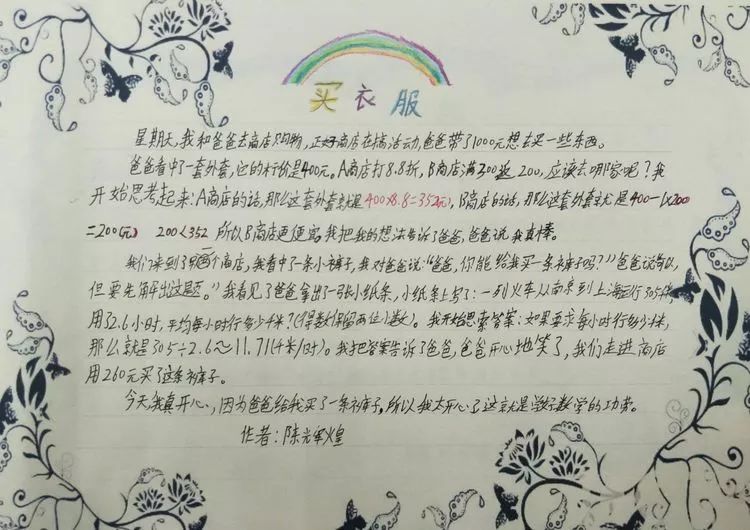 买衣服
星期天,我和爸爸去商店购物,正好商店在搞活动,爸爸带了1000元想去买一些东西。
爸爸看中了一套外套,它的标价是400元。A商店打8.8折,B商店满200返200,应该去哪家呢?我
开始思考起来:A商店的话,那么这套外套就是400×8.8=352(元),B商店的话,那么这套外套就是400-1×200
=200(元) 200<352 所以B商店更便宜。我把我的想法告诉了爸爸,爸爸说我真棒。
我们来到了另一个商店,我看中了一条小裤子,我对爸爸说:“爸爸,你能给我买一条裤子吗?”爸爸说可以,
但要先解出这题。”我看见了爸爸拿出了一张小纸条,小纸条上写了:一列火车从南京到上海运行305千米
用32.6小时,平均每小时行多少千米?(得数保留两位小数)。我开始思索答案:如果要求每小时行多少千米,
那么就是305÷2.6≈11.71(千米/时)。我把答案告诉了爸爸,爸爸开心地笑了,我们走进商店
用260元买了这条裤子。
今天,我真开心,因为爸爸给我买了一条裤子,所以我太开心了这就是学好数学的功劳。
作者:陈光